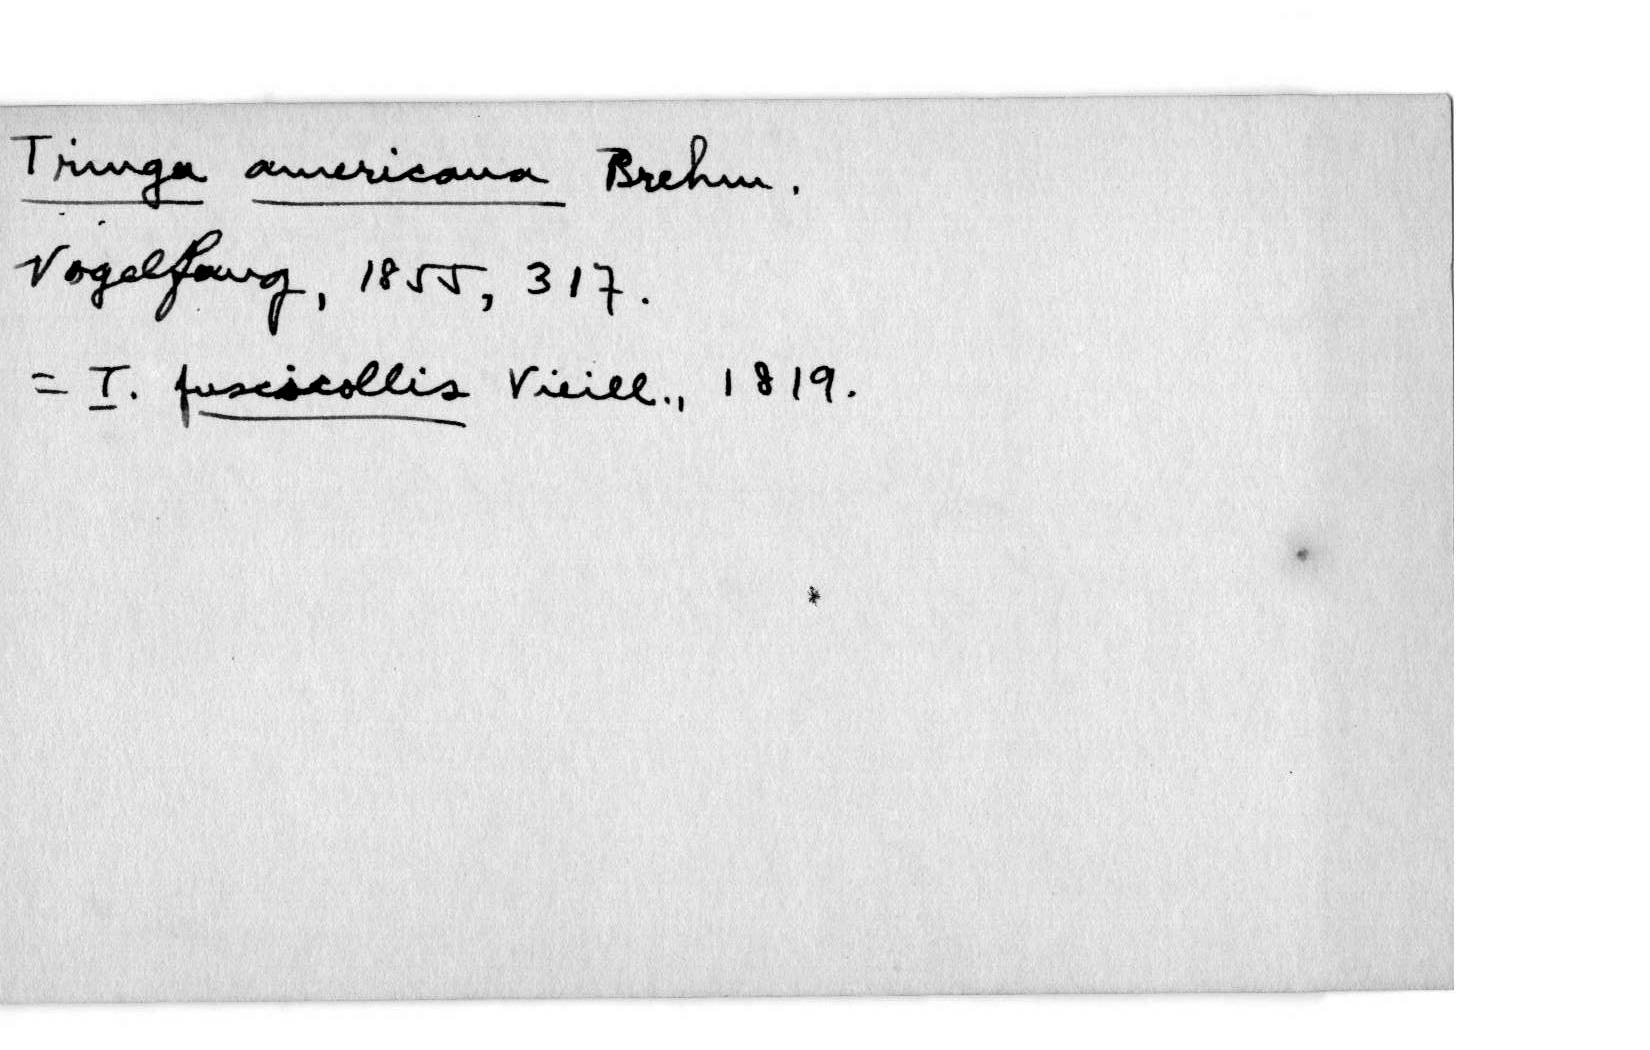 Tringa americana Brehm.
Vogelfang, 1855, 317.
= T. fuscicollis Vieill., 1819.